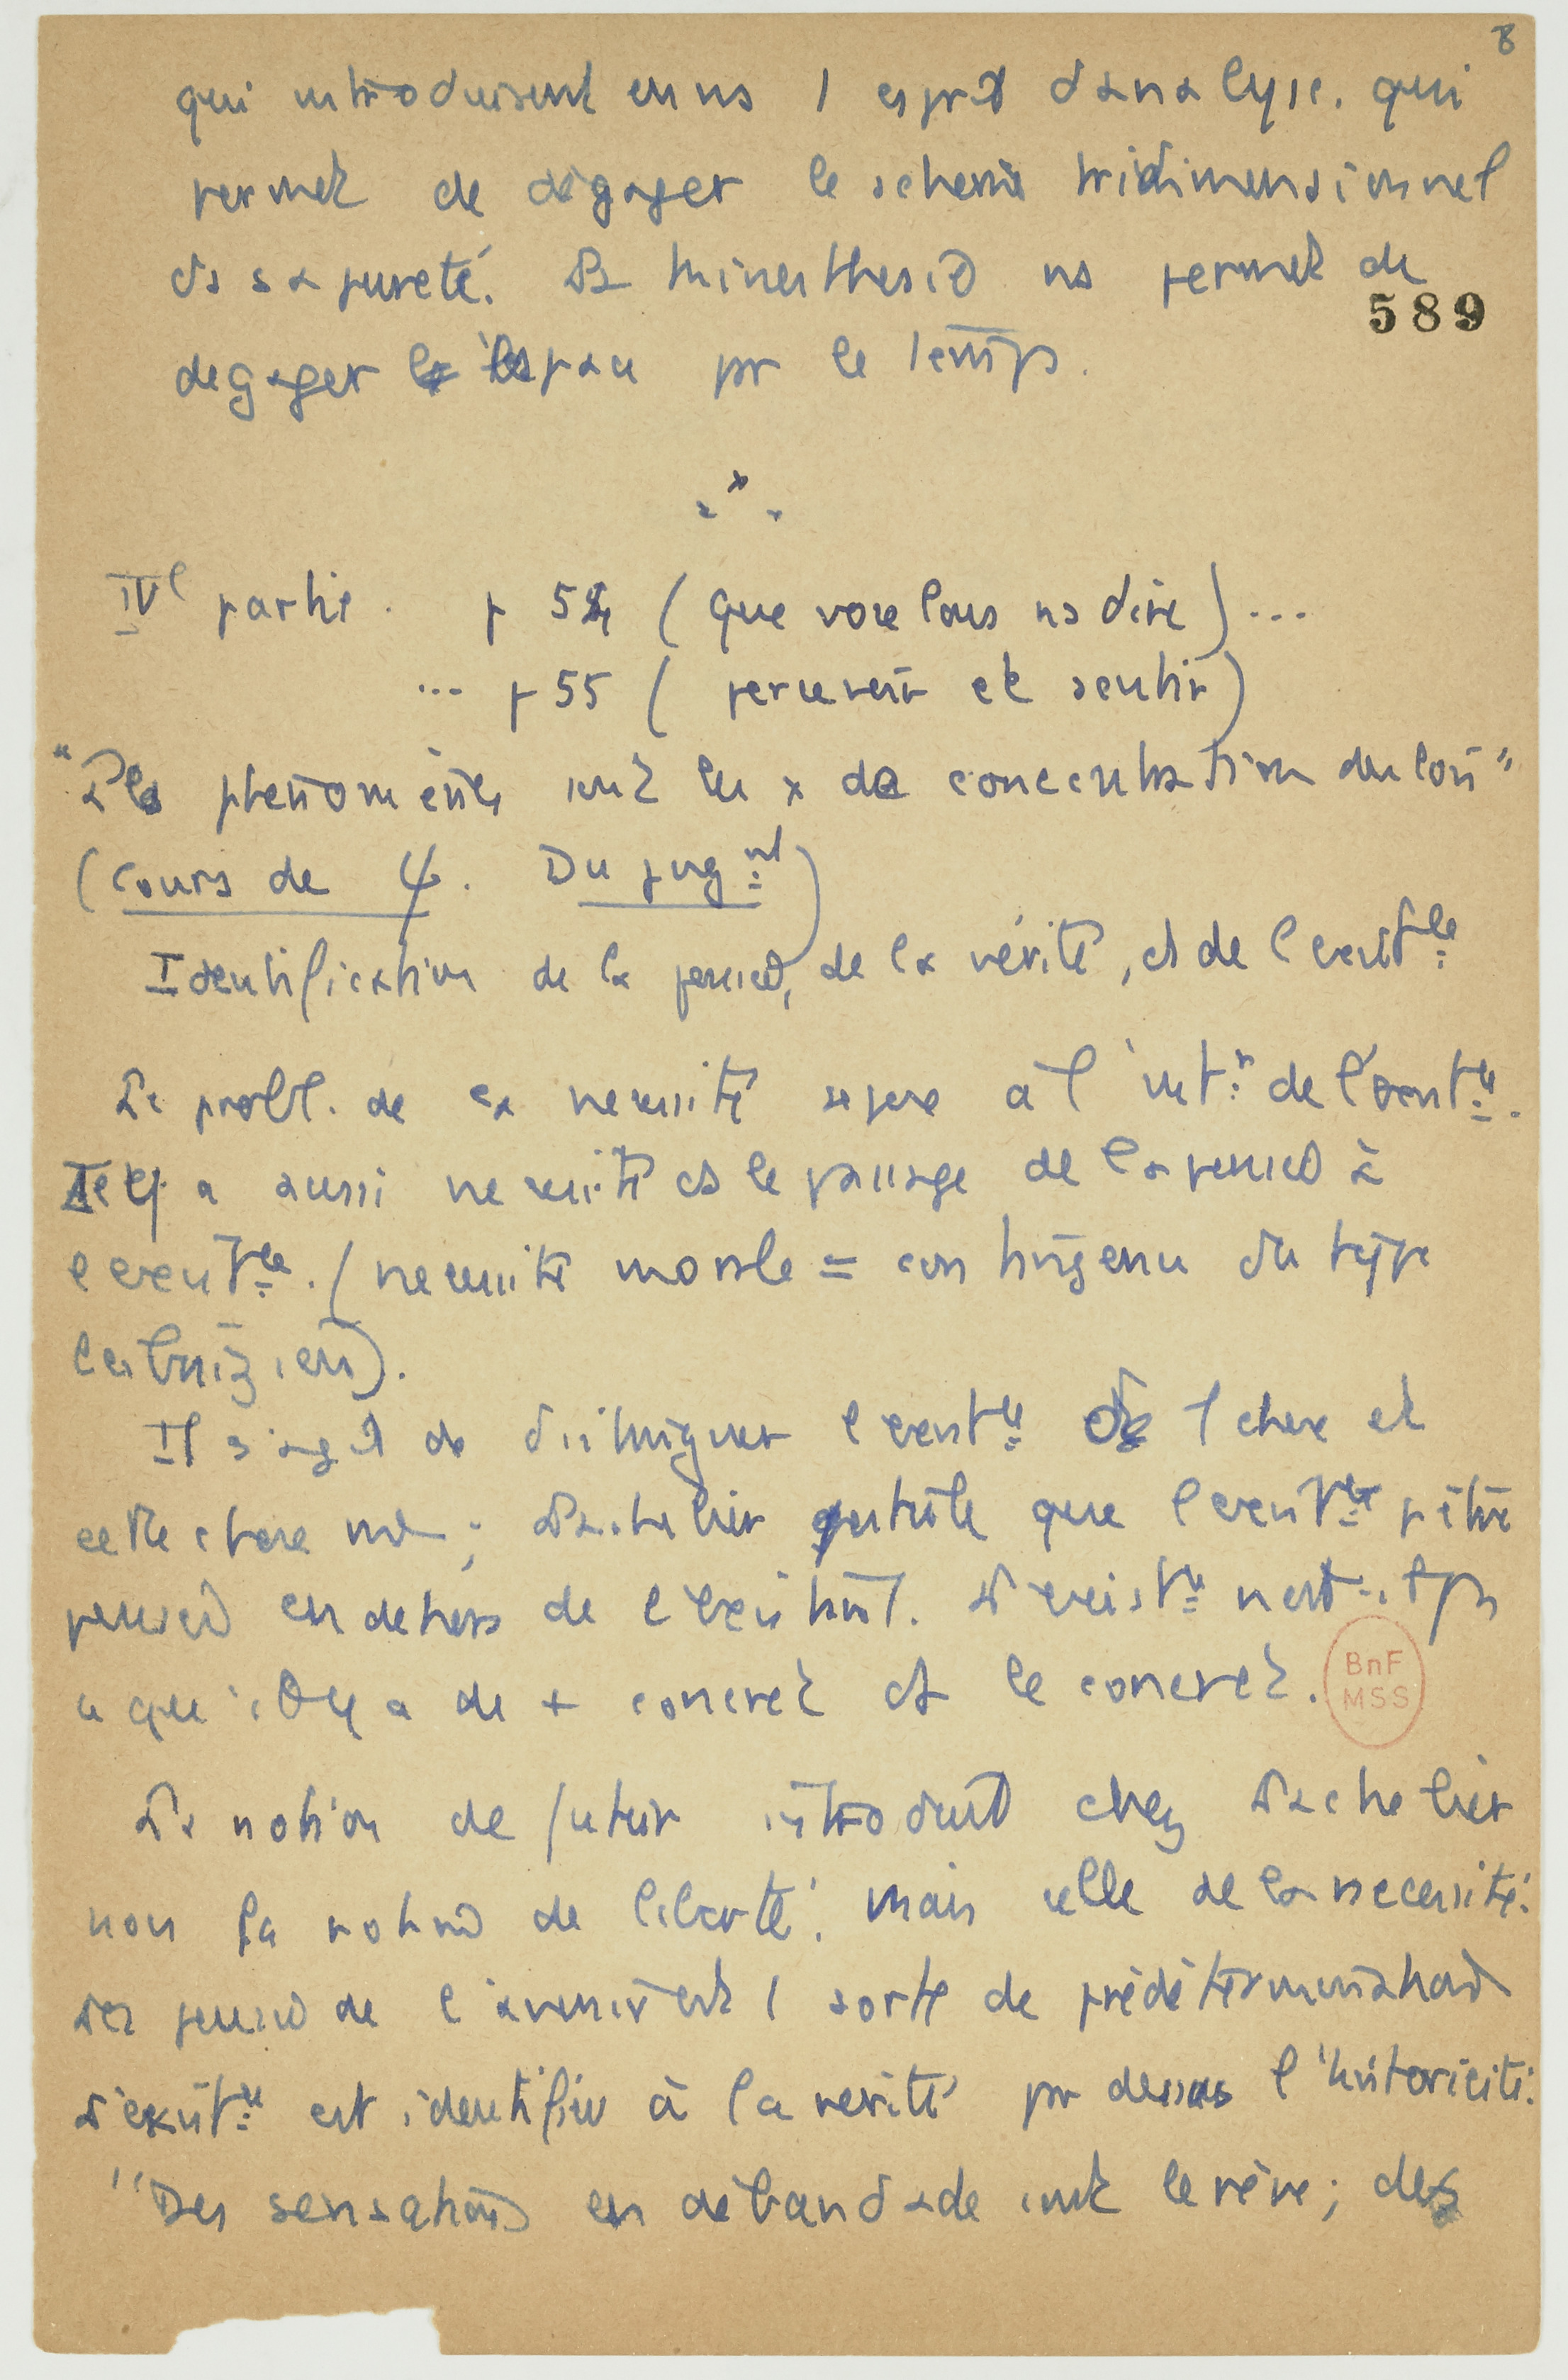 8
qui introduisent en ns 1 esprit d'analyse. qui
permet de dégager le schema tridimensionnel
ds sa pureté. La kinesthesie ns permet de
589
degager l'espace pr le temps.
IVe partie. p 54 (que voulons ns dire)...
... p 55 (percevoir et sentir)
"Les phenomènes sont les x de concentration du lois"
(Cours de ψ. Du jugnt)
Identification de la pensée, de la vérité, et de l'existce
Le probl. de la necessité se pose à l'intr de l'existce.
Il y a aussi necessité ds le passage de la pensée à
l'existce. (necessité morale = contingence du type
leibnizien).
Il s'agit de distinguer l'existce de 1 chose et
cette chose mê; Lachelier que l'existce p être
pensée en dehors de l'existant. L'existce n'est-
ce qu'il y a de + concret ds le concret.
BnF
MSS
La notion de futur introduit chez Lachelier
non la notion de liberté. mais celle de la necessité.
La pensée de l'avenir est 1 sorte de prédétermination
L'existce est identifiée à la verité pr dessus l'historicité.
"Des sensations en débandade sont le rêve; des